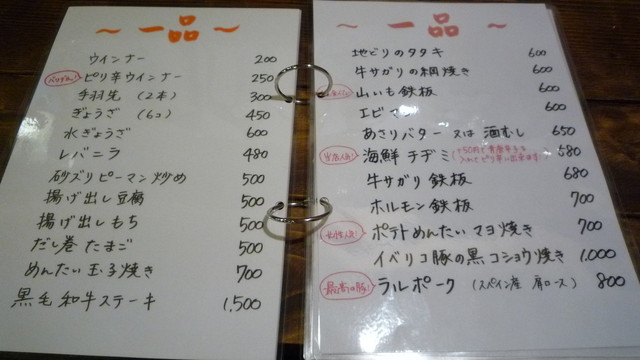 ～ 一品 ～
ウインナー 200
ピリ辛ウインナー 250
手羽先 (2本) 300
ぎょうざ (6コ) 450
水ぎょうざ 600
レバニラ 480
砂ズリピーマン炒め 500
揚げ出し豆腐 500
揚げ出しもち 500
だし巻たまご 500
めんたい玉子焼き 700
黒毛和牛ステーキ 1,500
～ 一品 ～
地どりのタタキ 600
牛サガリの網焼き 600
山いも鉄板 600
エビマ 600
あさりバター 又は 酒むし 650
海鮮チヂミ 580
牛サガリ鉄板 680
ホルモン鉄板 700
ポテトめんたいマヨ焼き 700
イベリコ豚の黒コショウ焼き 1,000
最高の豚! ラルポーク (スペイン産 肩ロース) 800